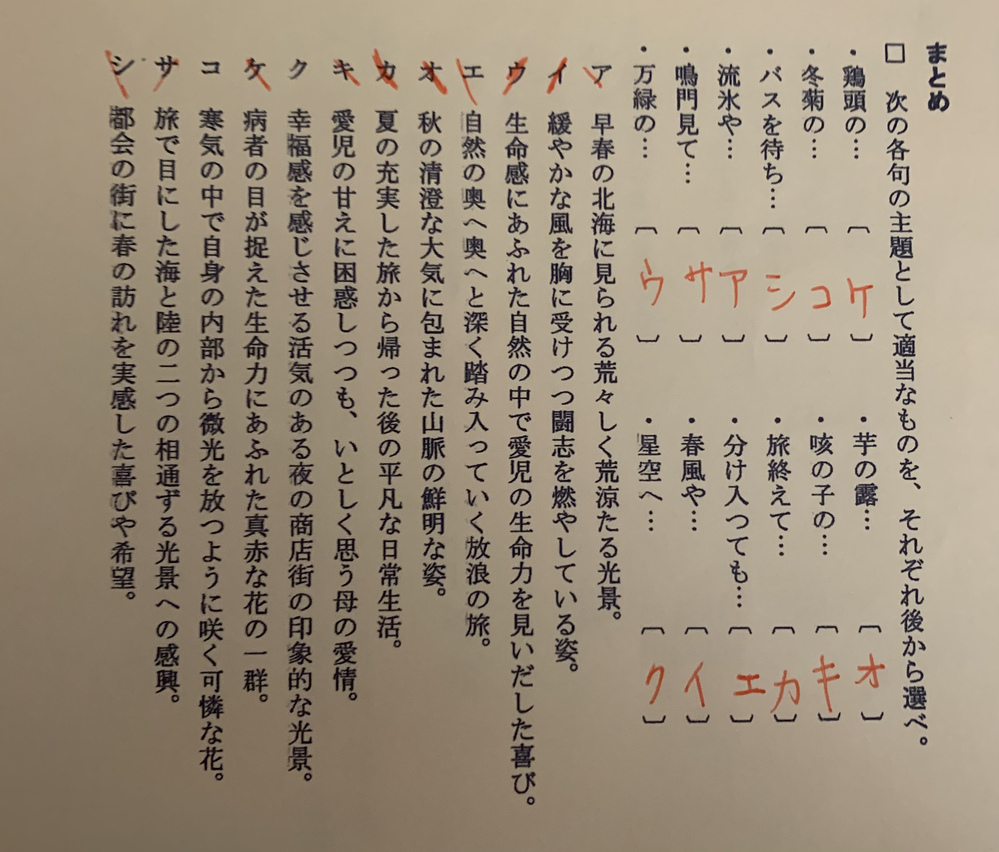 まとめ
□ 次の各句の主題として適当なものを、それぞれ後から選べ。
・鶏頭の… 〔ケ〕 ・芋の露… 〔オ〕
・冬菊の… 〔コ〕 ・咳の子の… 〔キ〕
・バスを待ち… 〔シ〕 ・旅終えて… 〔カ〕
・流氷や… 〔ア〕 ・分け入つても… 〔エ〕
・鳴門見て… 〔サ〕 ・春風や… 〔イ〕
・万緑の… 〔ウ〕 ・星空へ… 〔ク〕
ア 早春の北海に見られる荒々しく荒涼たる光景。
イ 緩やかな風を胸に受けつつ闘志を燃やしている姿。
ウ 生命感にあふれた自然の中で愛児の生命力を見いだした喜び。
エ 自然の奥へ奥へと深く踏み入っていく放浪の旅。
オ 秋の清澄な大気に包まれた山脈の鮮明な姿。
カ 夏の充実した旅から帰った後の平凡な日常生活。
キ 愛児の甘えに困惑しつつも、いとしく思う母の愛情。
ク 幸福感を感じさせる活気のある夜の商店街の印象的な光景。
ケ 病者の目が捉えた生命力にあふれた真赤な花の一群。
コ 寒気の中で自身の内部から微光を放つように咲く可憐な花。
サ 旅で目にした海と陸の二つの相通ずる光景への感興。
シ 都会の街に春の訪れを実感した喜びや希望。